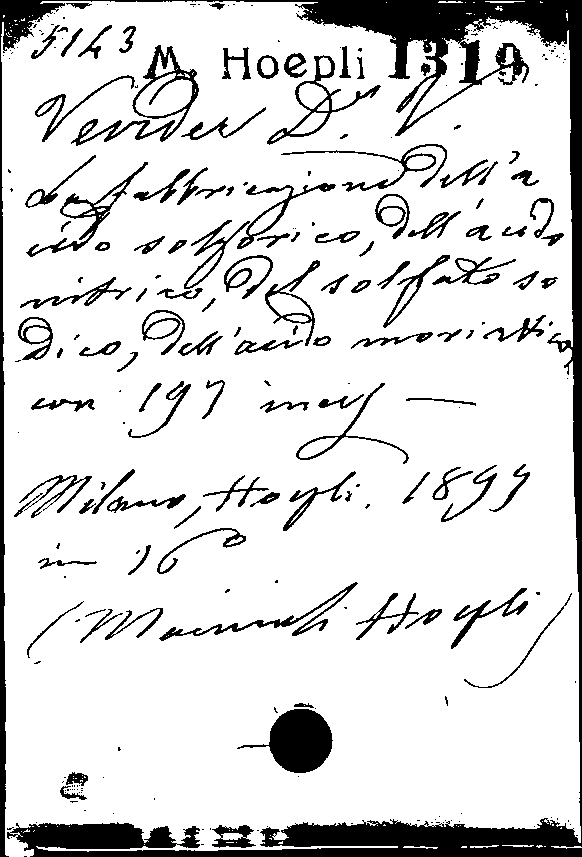 5143 M. Hoepli 1319
Vender Dr. V.
La fabbricazione dell'a
cido solforico, dell'acido
nitrico, del solfato so
dico, dell'acido muriatico,
con 107 incis
Milano, Hoepli. 1897
in 16°
(Manuali Hoepli)